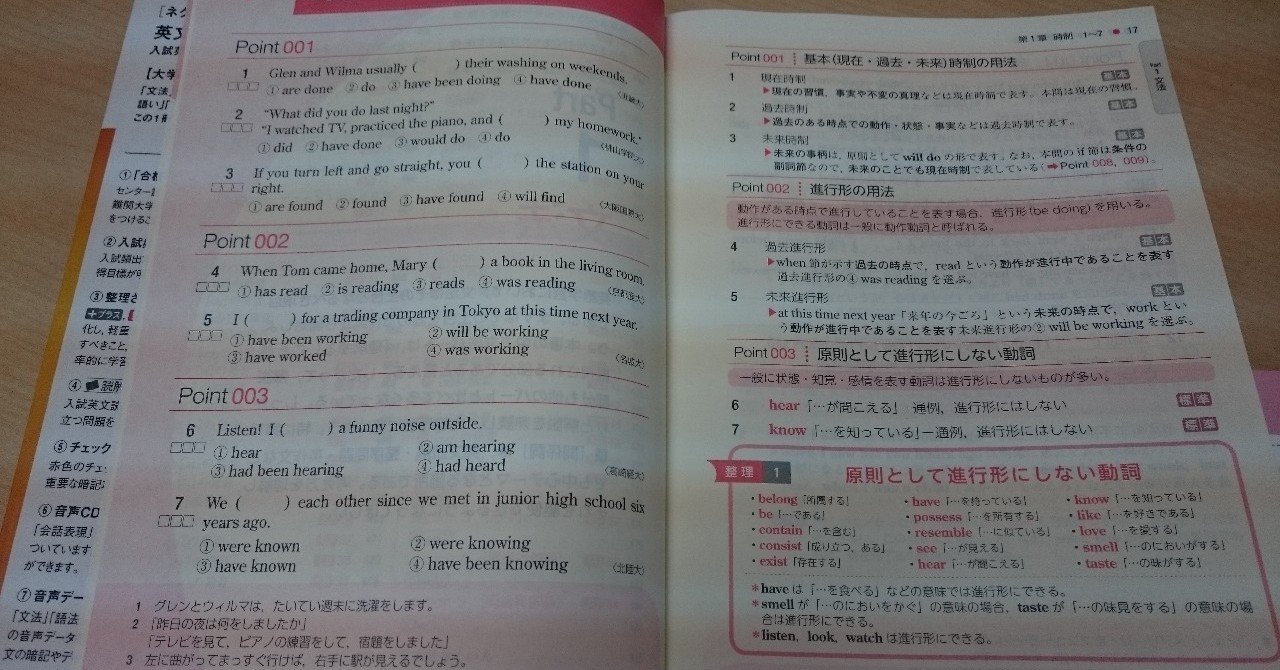 [ネク
英文
入試英
【大学
「文法」
語い」「
この1冊
①「合格
センター試
難関大学
をつけるこ
② 入試
入試頻出
得目標が
③ 整理さ
＋プラス
化し，軽重
すべきこと，
率的に学習
④ 読解
入試英文読
立つ問題を
⑤ チェック
赤色のチェ
重要な暗記
⑥ 音声CD
「会話表現」
ついています
ができます。
⑦ 音声デー
「文法」「語法
の音声データ
文の暗記やデ
Point 001
1 Glen and Wilma usually (　　) their washing on weekends.
① are done ② do ③ have been doing ④ have done
2 "What did you do last night?"
"I watched TV, practiced the piano, and (　　) my homework."
① did ② have done ③ would do ④ do
3 If you turn left and go straight, you (　　) the station on your
right.
① are found ② found ③ have found ④ will find
〈大阪国際大〉
Point 002
4 When Tom came home, Mary (　　) a book in the living room.
① has read ② is reading ③ reads ④ was reading
5 I (　　) for a trading company in Tokyo at this time next year.
① have been working ② will be working
③ have worked ④ was working
〈名城大〉
Point 003
6 Listen! I (　　) a funny noise outside.
① hear ② am hearing
③ had been hearing ④ had heard
〈宮崎経大〉
7 We (　　) each other since we met in junior high school six
years ago.
① were known ② were knowing
③ have known ④ have been knowing
〈北陸大〉
1 グレンとウィルマは，たいてい週末に洗濯をします。
2 「昨日の夜は何をしましたか」
「テレビを見て，ピアノの練習をして，宿題をしました」
3 左に曲がってまっすぐ行けば，右手に駅が見えるでしょう。
第1章 時制 1〜7 ● 17
Part 1 文法
Point 001 基本（現在・過去・未来）時制の用法
1 現在時制 基本
▶現在の習慣，事実や不変の真理などは現在時制で表す。本問は現在の習慣。
2 過去時制 基本
▶過去のある時点での動作・状態・事実などは過去時制で表す。
3 未来時制 基本
▶未来の事柄は，原則として will do の形で表す。なお，本問の if 節は条件の
副詞節なので，未来のことでも現在時制で表している（➡Point 008, 009）。
Point 002 進行形の用法
動作がある時点で進行していることを表す場合，進行形 (be doing) を用いる。
進行形にできる動詞は一般に動作動詞と呼ばれる。
4 過去進行形 基本
▶when 節が示す過去の時点で，read という動作が進行中であることを表す
過去進行形の④ was reading を選ぶ。
5 未来進行形 基本
▶at this time next year「来年の今ごろ」という未来の時点で，work とい
う動作が進行中であることを表す未来進行形の② will be working を選ぶ。
Point 003 原則として進行形にしない動詞
一般に状態・知覚・感情を表す動詞は進行形にしないものが多い。
6 hear「…が聞こえる」－通例，進行形にはしない 標準
7 know「…を知っている」－通例，進行形にはしない 標準
整理 1 原則として進行形にしない動詞
・belong「所属する」 ・have「…を持っている」 ・know「…を知っている」
・be「…である」 ・possess「…を所有する」 ・like「…を好きである」
・contain「…を含む」 ・resemble「…に似ている」 ・love「…を愛する」
・consist「成り立つ，ある」 ・see「…が見える」 ・smell「…のにおいがする」
・exist「存在する」 ・hear「…が聞こえる」 ・taste「…の味がする」
＊have は「…を食べる」などの意味では進行形にできる。
＊smell が「…のにおいをかぐ」の意味の場合，taste が「…の味見をする」の意味の場
合は進行形にできる。
＊listen, look, watch は進行形にできる。